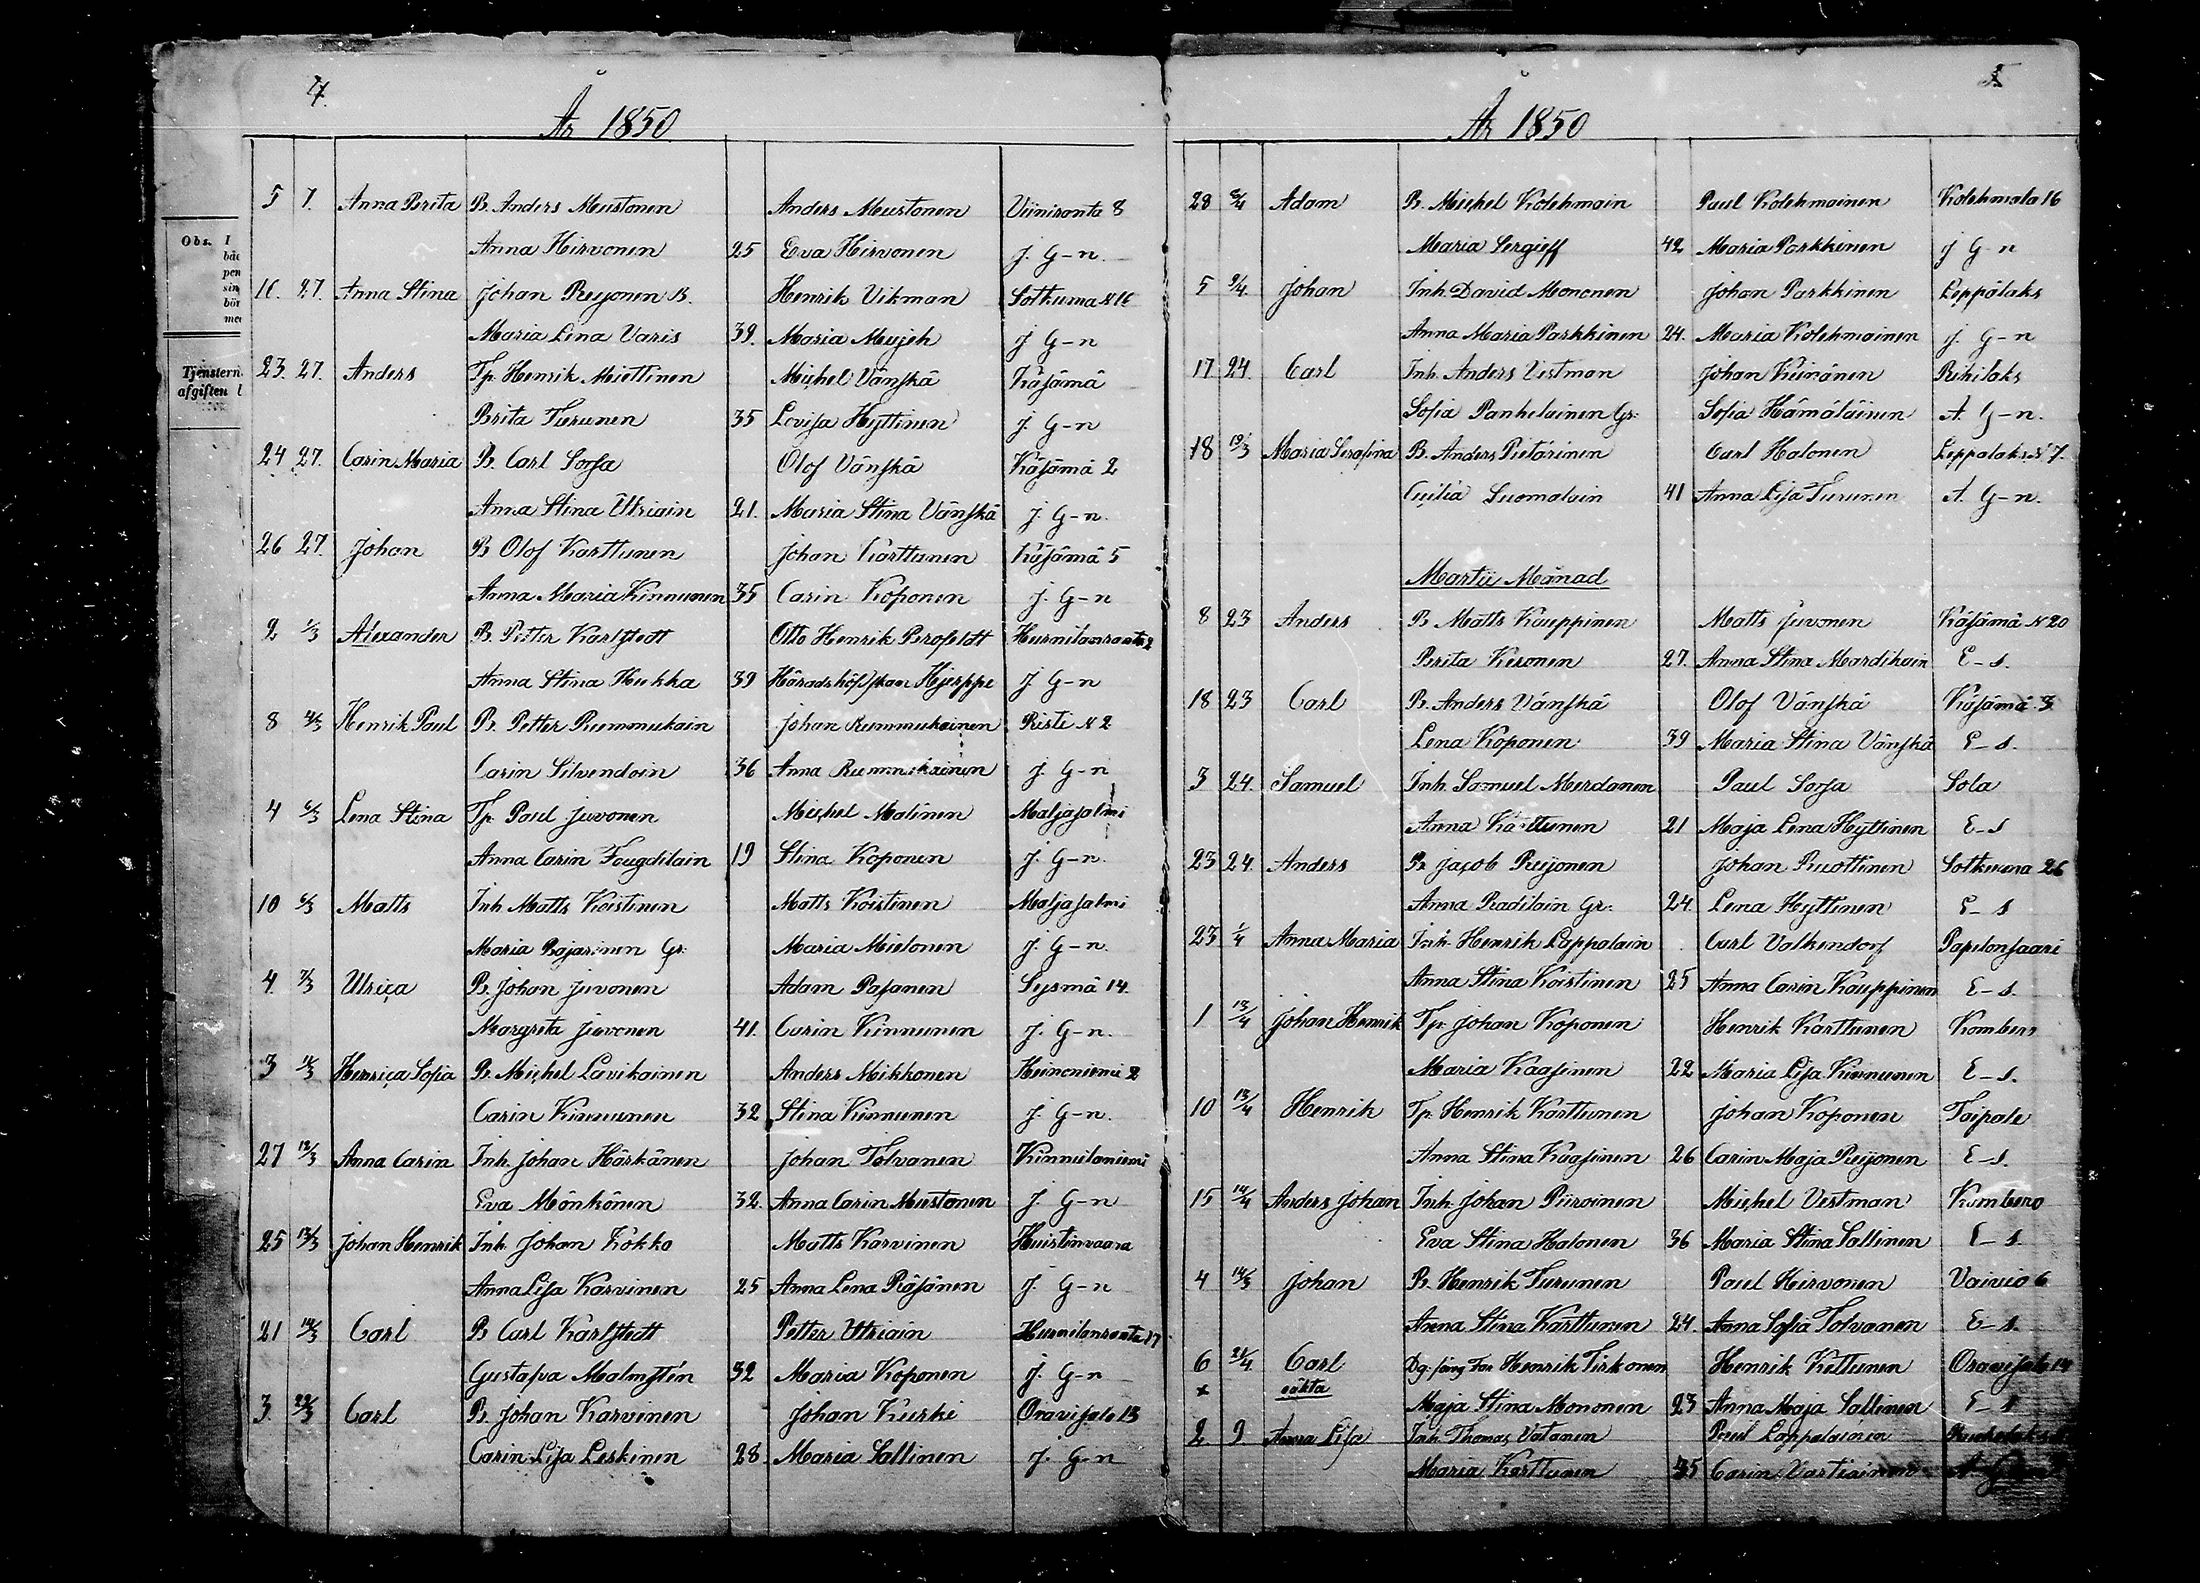 4.
År 1850
5 7. Anna Brita B. Anders Mustonen Anders Mustonen Viiniranta 8
Anna Hirvonen 25 Eva Hirvonen J. G-n.
16. 27. Anna Stina Johan Reijonen B. Henrik Vikman Sotkuma N 16
Maria Lena Varis 39. Maria J G-n
23. 27. Anders Tp. Henrik Miettinen Michel Vänskä Käsämä
Brita Turunen 35 Lovisa Hyttinen J. G-n
24 27. Carin Maria B. Carl Sorsa Olof Vänskä Käsämä 2
Anna Stina Utriain 21. Maria Stina Vänskä J. G-n.
26 27. Johan B Olof Karttunen Johan Karttunen Käsämä 5
Anna Maria Kinnunen 35 Carin Koponen J. G-n
2 1/3 Alexander B. Petter Karlstedt Otto Henrik
Anna Stina Hukka 39 Hjerppe J G-n
8 4/3 Henrik Paul B. Petter Rummukain Johan Rummukainen Risti N 2
Carin Silvendoin 36 Anna Rummukainen J. G-n
4 6/3 Lena Stina Tp. Paul Juvonen Michel Malinen Maljasalmi
Anna Carin Fougdilain 19 Stina Koponen J. G-n.
10 6/3 Matts Inh Matts Koistinen Matts Koistinen Maljasalmi
Maria Pajarinen Gr. Maria Mielonen J. G-n.
4. 7/3 Ulrica B. Johan Juvonen Adam Pasanen Sysmä 14.
Margreta Juvonen 41. Carin Kinnunen J. G-n.
3 Henrica Sofia B. Michel Lavikainen Anders Mikkonen Heinoniemi 2
Carin Kinnunen 32 Stina Kinnunen J. G-n.
27 12/3 Anna Carin Inh. Johan Härkänen Johan Tolvanen Kinnilaniemi
Eva Mönkönen 32. Anna Carin Mustonen J. G-n
25 13/3 Johan Henrik Inh. Johan Kokko Matts Karvinen Huistinvaara
Anna Lisa Karvinen 25 Anna Lena Räsänen J. G-n
21 14/3 Carl B Carl Karlstedt Petter Utriain Hurnilanranta 17
Gustafva Malmstén 32 Maria Koponen J. G-n
3. 22/3 Carl B. Johan Karvinen Johan Kurki Oravisalo 13
Carin Lisa Leskinen 28. Maria Sallinen J. G-n
5
År 1850
28 Adam B. Michel Kolehmain Paul Kolehmainen Kolehmala 16
Maria Sergieff 42 Maria Parkkinen J G-n
5 9/4. Johan Inh. David Mononen Johan Parkkinen Leppälaks
Anna Maria Parkkinen 24. Maria Kolehmainen J. G-n
17 24. Carl Inh. Anders Vestman Johan Kiinänen Rikilaks
Sofia Panhelainen Gr. Sofia Hämäläinen A. G-n.
18 19/3 Maria Serafina B. Anders Pietarinen Carl Halonen Leppalaks N 7.
Cecilia Suomalain 41 Anna Lisa Turunen A. G-n.
Martii Månad
8 23 Anders B Matts Kauppinen Matts Juvonen Käsämä N 20
Brita Keronen 27. Anna Stina Mardikain E-s.
18 23 Carl B. Anders Vänskä Olof Vänskä Käsämä 3
Lena Koponen 39 Maria Stina Vänskä E-s.
3 24. Samuel Inh. Samuel Merdanen Paul Sorsa Sola
Anna Karttunen 21 Maja Lena Hyttinen E-s
23 24. Anders B. Jacob Reijonen Johan Ruottinen Sotkuma 26
Anna Radilain Gr. 24. Lena Hyttinen E-s
23 1/4 Anna Maria Inh. Henrik Lappalain Carl Valkendorf Papelonsaari
Anna Stina Koistinen 25 Anna Carin Kauppinen E-s.
1 13/4 Johan Henrik Tp. Johan Koponen Henrik Karttunen Kombero
Maria Kaasinen 22 Maria Lisa Kinnunen E-s.
10 13/4 Henrik Tp. Henrik Karttunen Johan Koponen Taipale
Anna Stina Kaasinen 26 Carin Maja Reijonen E-s.
15 14/4 Anders Johan Inh. Johan Piiroinen Michel Vestman Kumbero
Eva Stina Halonen 36 Maria Stina Sallinen E-s.
4 14/3 Johan B. Henrik Turunen Paul Hirvonen Vaivio 6
Anna Stina Karttunen 24 Anna Sofia Tolvanen E-s.
6 21/4 Carl Henrik Tirkonen Henrik Kettunen Oravisalo 14
x oäkta Maja Stina Mononen 23 Anna Maja Sallinen E-s
2. 9 Anna Lisa Inh. Thomas Vatanen Paul Lappalainen
Maria Karttunen 35 Carin Vartiainen A.
Obs. I
bäc
pen
sin
bör
med
Tjenstern
afgiften